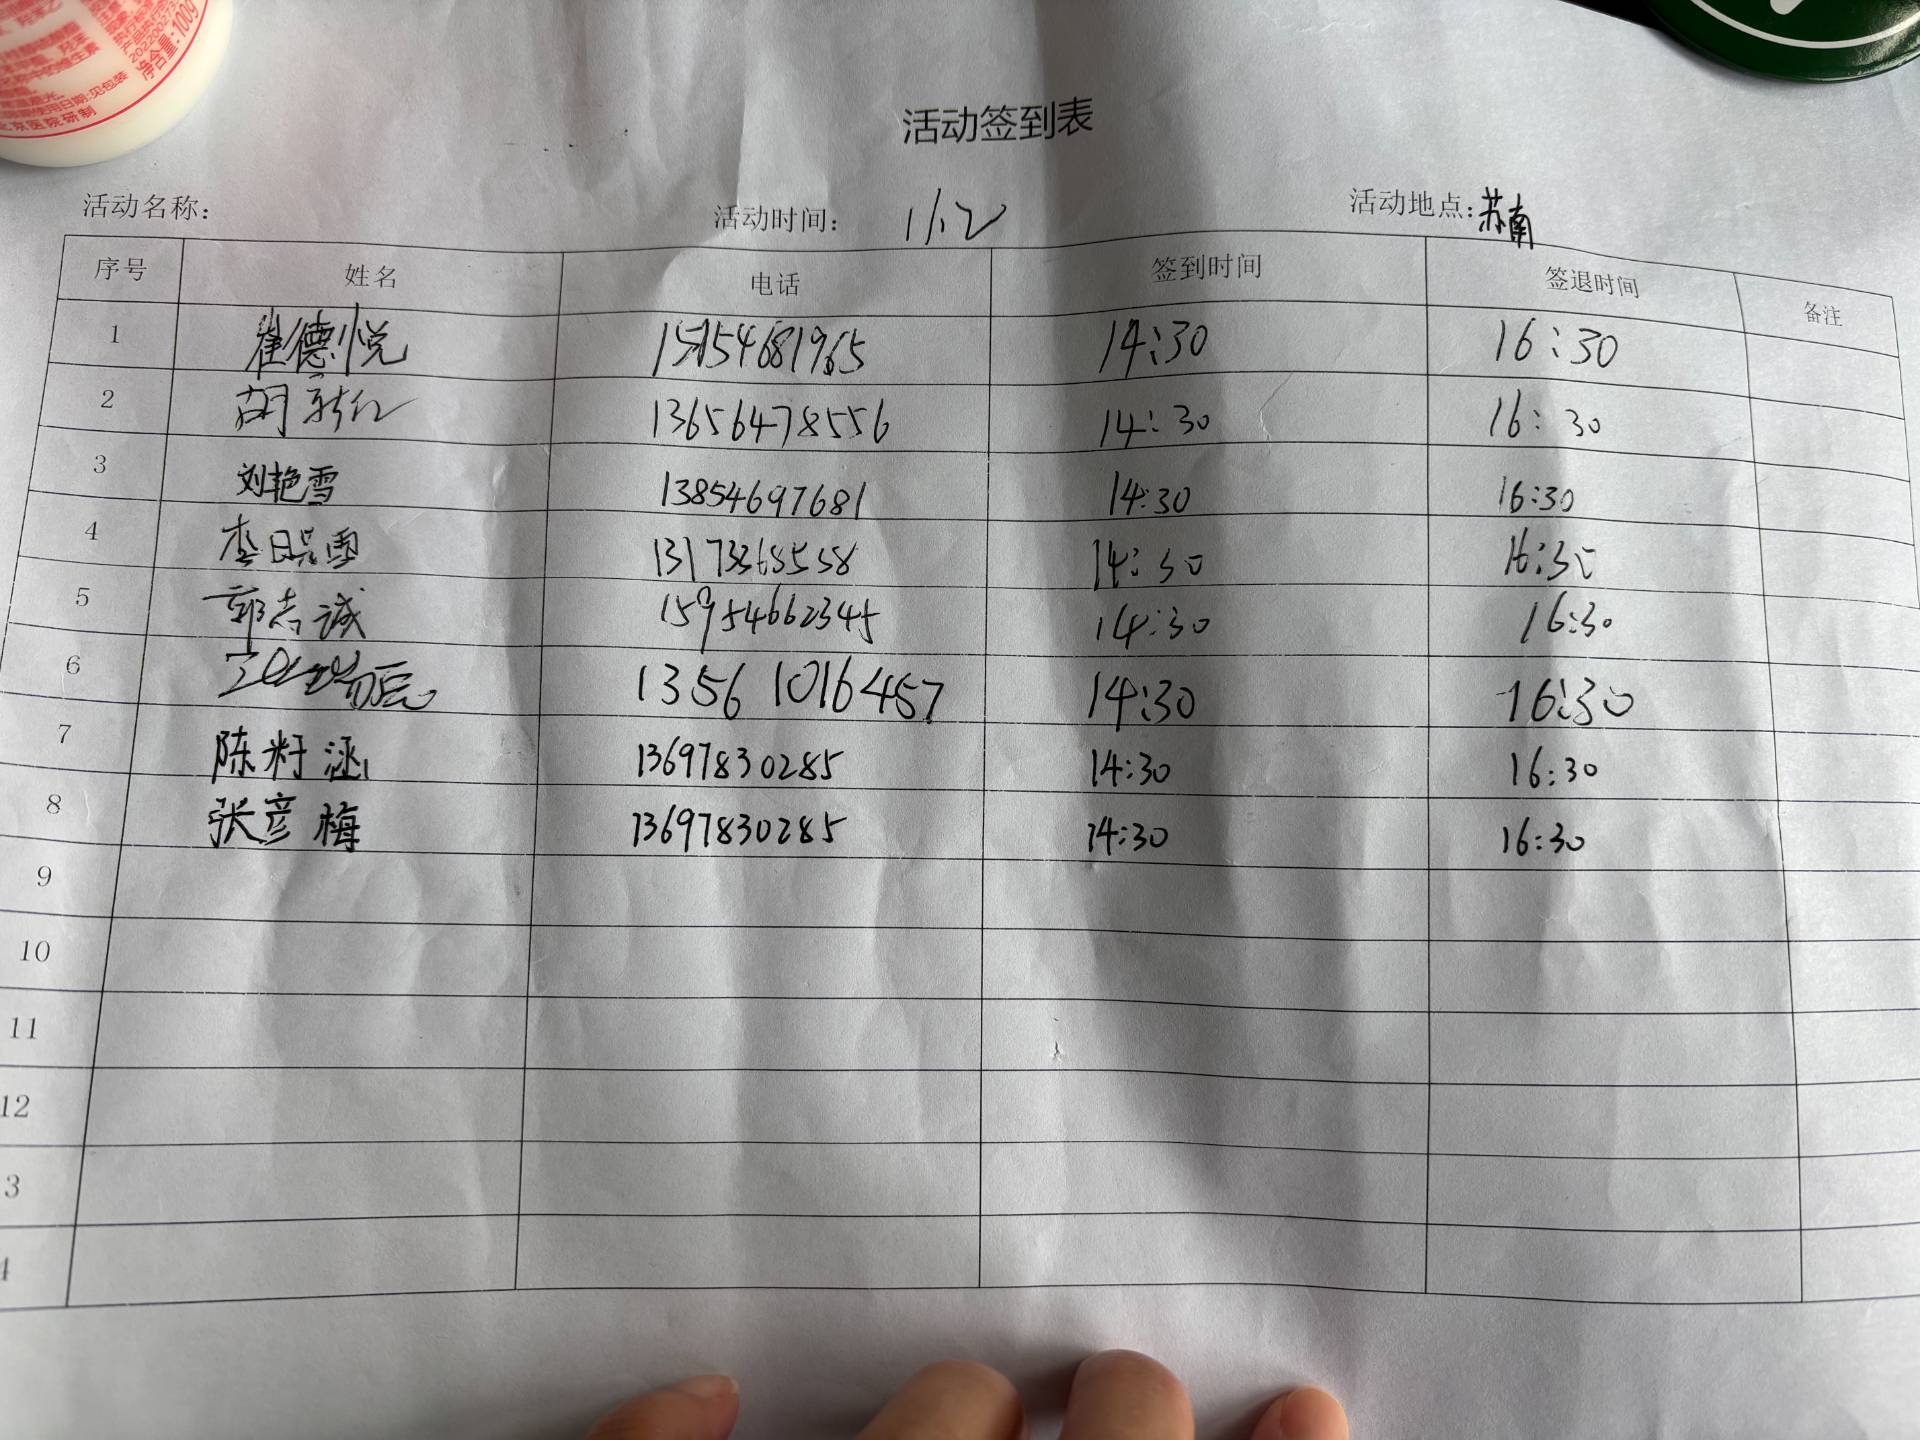 202200273
净含量:100g
使用日期:见包装
北京医院研制
活动签到表
活动名称: 活动时间: 1.12 活动地点:苏南
序号 姓名 电话 签到时间 签退时间 备注
1 崔德悦 15154681965 14:30 16:30
2 胡新红 13656478556 14:30 16:30
3 刘艳雪 13854697681 14:30 16:30
4 李 14:30 16:30
5 郭志诚 15954662345 14:30 16:30
6 13561016457 14:30 16:30
7 陈籽涵 13697830285 14:30 16:30
8 张彦梅 13697830285 14:30 16:30
9
10
11
12
3
4